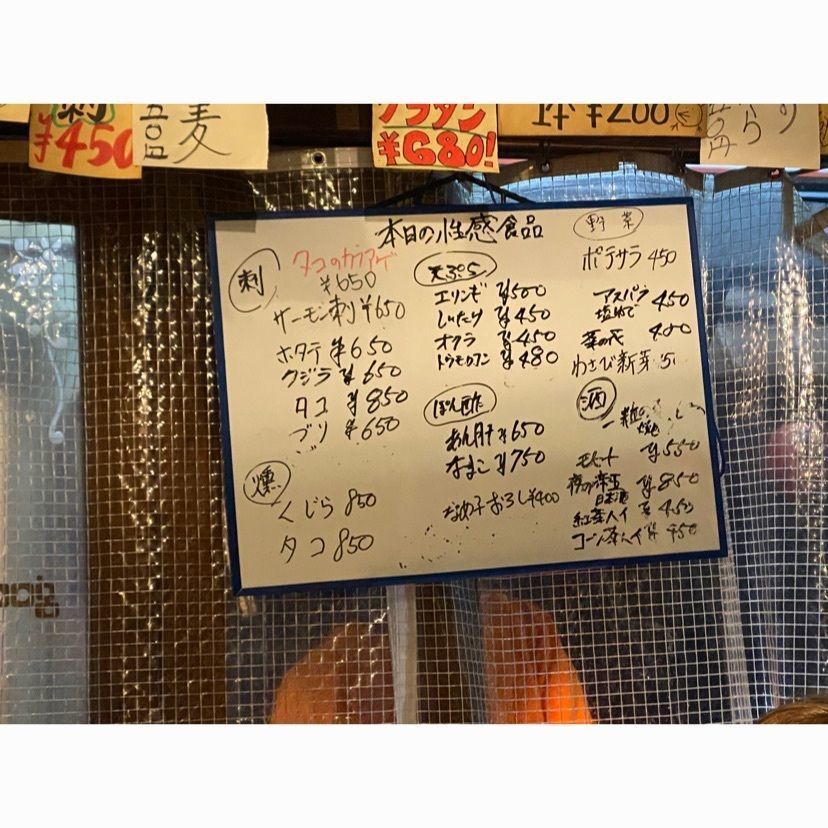 刺
¥450
五〇円
麦
グラタン
¥680!
¥200
本日の性感食品
刺
タコのカラアゲ
¥650
サーモン刺 ¥650
ホタテ ¥650
クジラ ¥650
タコ ¥850
ブリ ¥650
燻
くじら 850
タコ 850
天ぷら
エリンギ ¥500
しいたけ ¥450
オクラ ¥450
トウモロコシ ¥480
ぽん酢
あん肝 ¥650
なまこ ¥750
なめ子おろし ¥400
野菜
ポテサラ 450
アスパラ
塩ゆで 450
菜の花 400
わさび新芽
酒
¥550
¥850
日本酒
紅茶ハイ ¥450
コーン茶ハイ ¥450